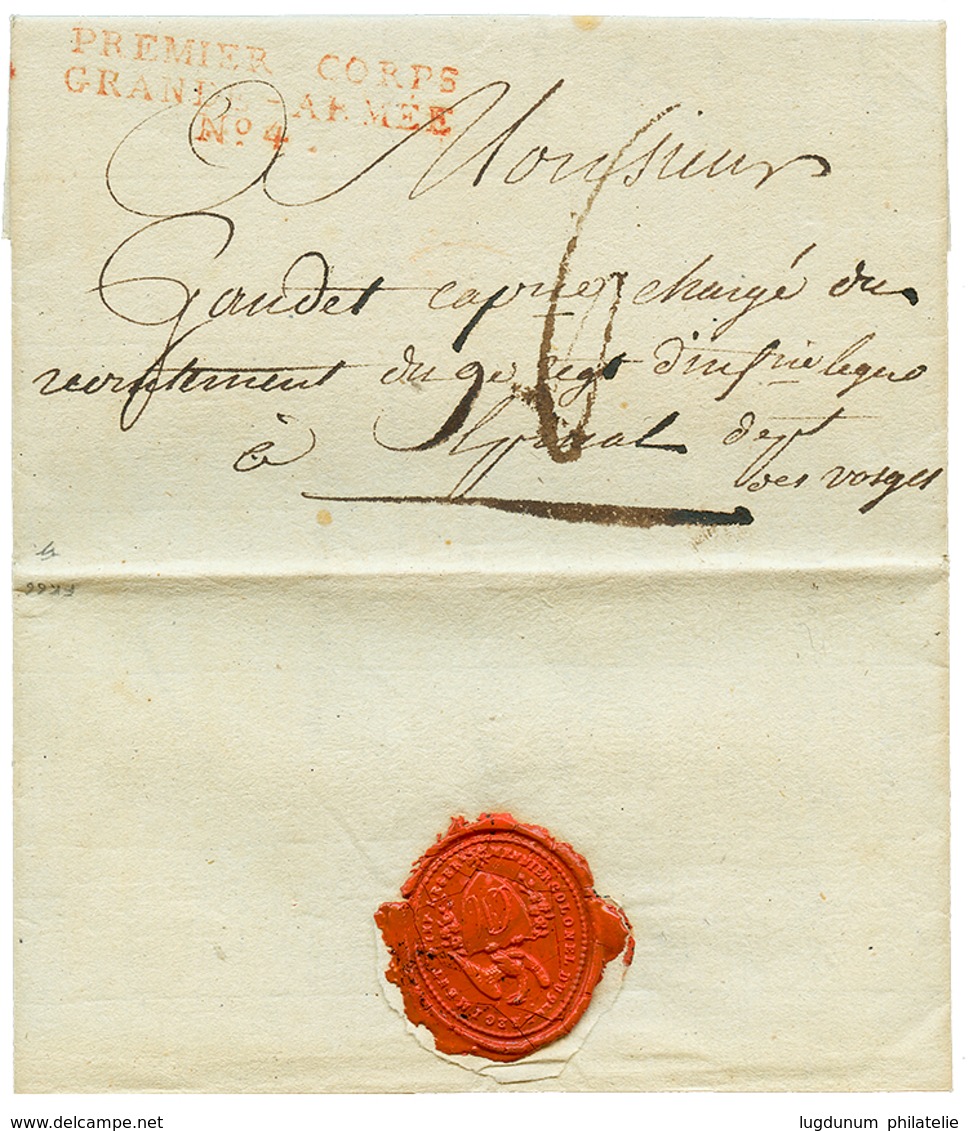 PREMIER CORPS
GRANDE-ARMÉE
No. 4.
A Monsieur
Gaudet cap.ne chargé du
recrutement du 9e regt d'inf.rie legere
à Epinal dept
des vosges
COLONEL DU 9
REGIMENT
lugdunum philatelie